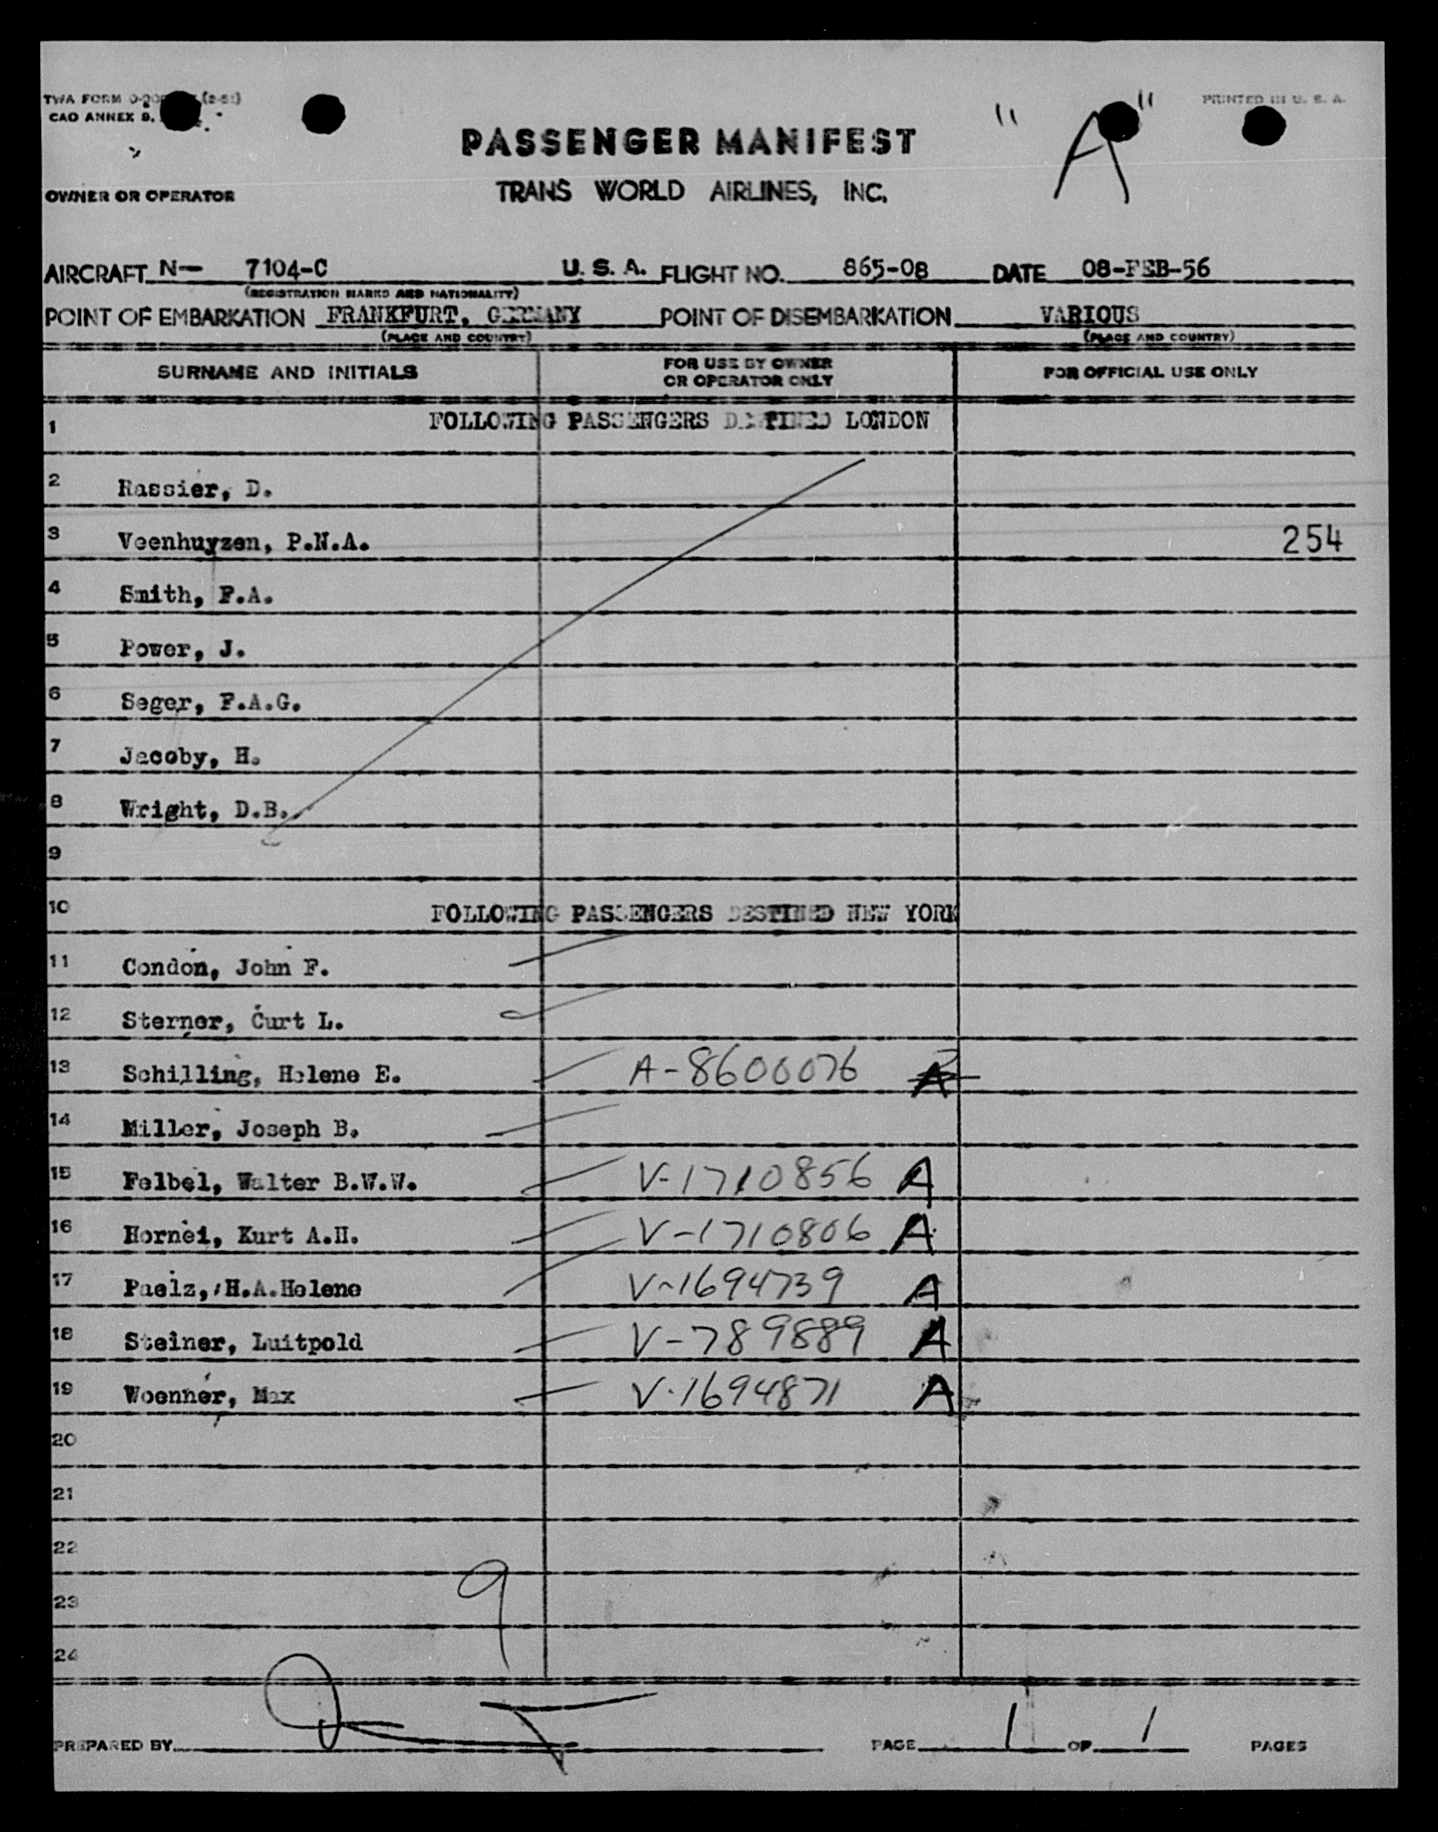 TWA FORM
PRINTED IN U. S. A.
CAO ANNEX 9.
"A"
PASSENGER MANIFEST
OWNER OR OPERATOR
TRANS WORLD AIRLINES, INC.
AIRCRAFT N- 7104-C U. S. A. FLIGHT NO. 865-08 DATE 08-FEB-56
(REGISTRATION MARKS AND NATIONALITY)
POINT OF EMBARKATION FRANKFURT, GERMANY POINT OF DISEMBARKATION VARIOUS
(PLACE AND COUNTRY) (PLACE AND COUNTRY)
SURNAME AND INITIALS FOR USE BY OWNER OR OPERATOR ONLY FOR OFFICIAL USE ONLY
1 FOLLOWING PASSENGERS DESTINED LONDON
2 Rassier, D.
3 Veenhuyzen, P.N.A. 254
4 Smith, F.A.
5 Power, J.
6 Seger, F.A.G.
7 Jacoby, H.
8 Wright, D.B.
9
10 FOLLOWING PASSENGERS DESTINED NEW YORK
11 Condon, John F.
12 Sterner, Curt L.
13 Schilling, Helene E. A-8600076 A
14 Miller, Joseph B.
15 Felbel, Walter B.W.W. V-1710856 A
16 Hornei, Kurt A.H. V-1710806 A
17 Paelz, H.A.Helene V-1694739 A
18 Steiner, Luitpold V-789889 A
19 Woenner, Max V-1694871 A
20
21
22
23
24
9
PREPARED BY PAGE 1 OF 1 PAGES